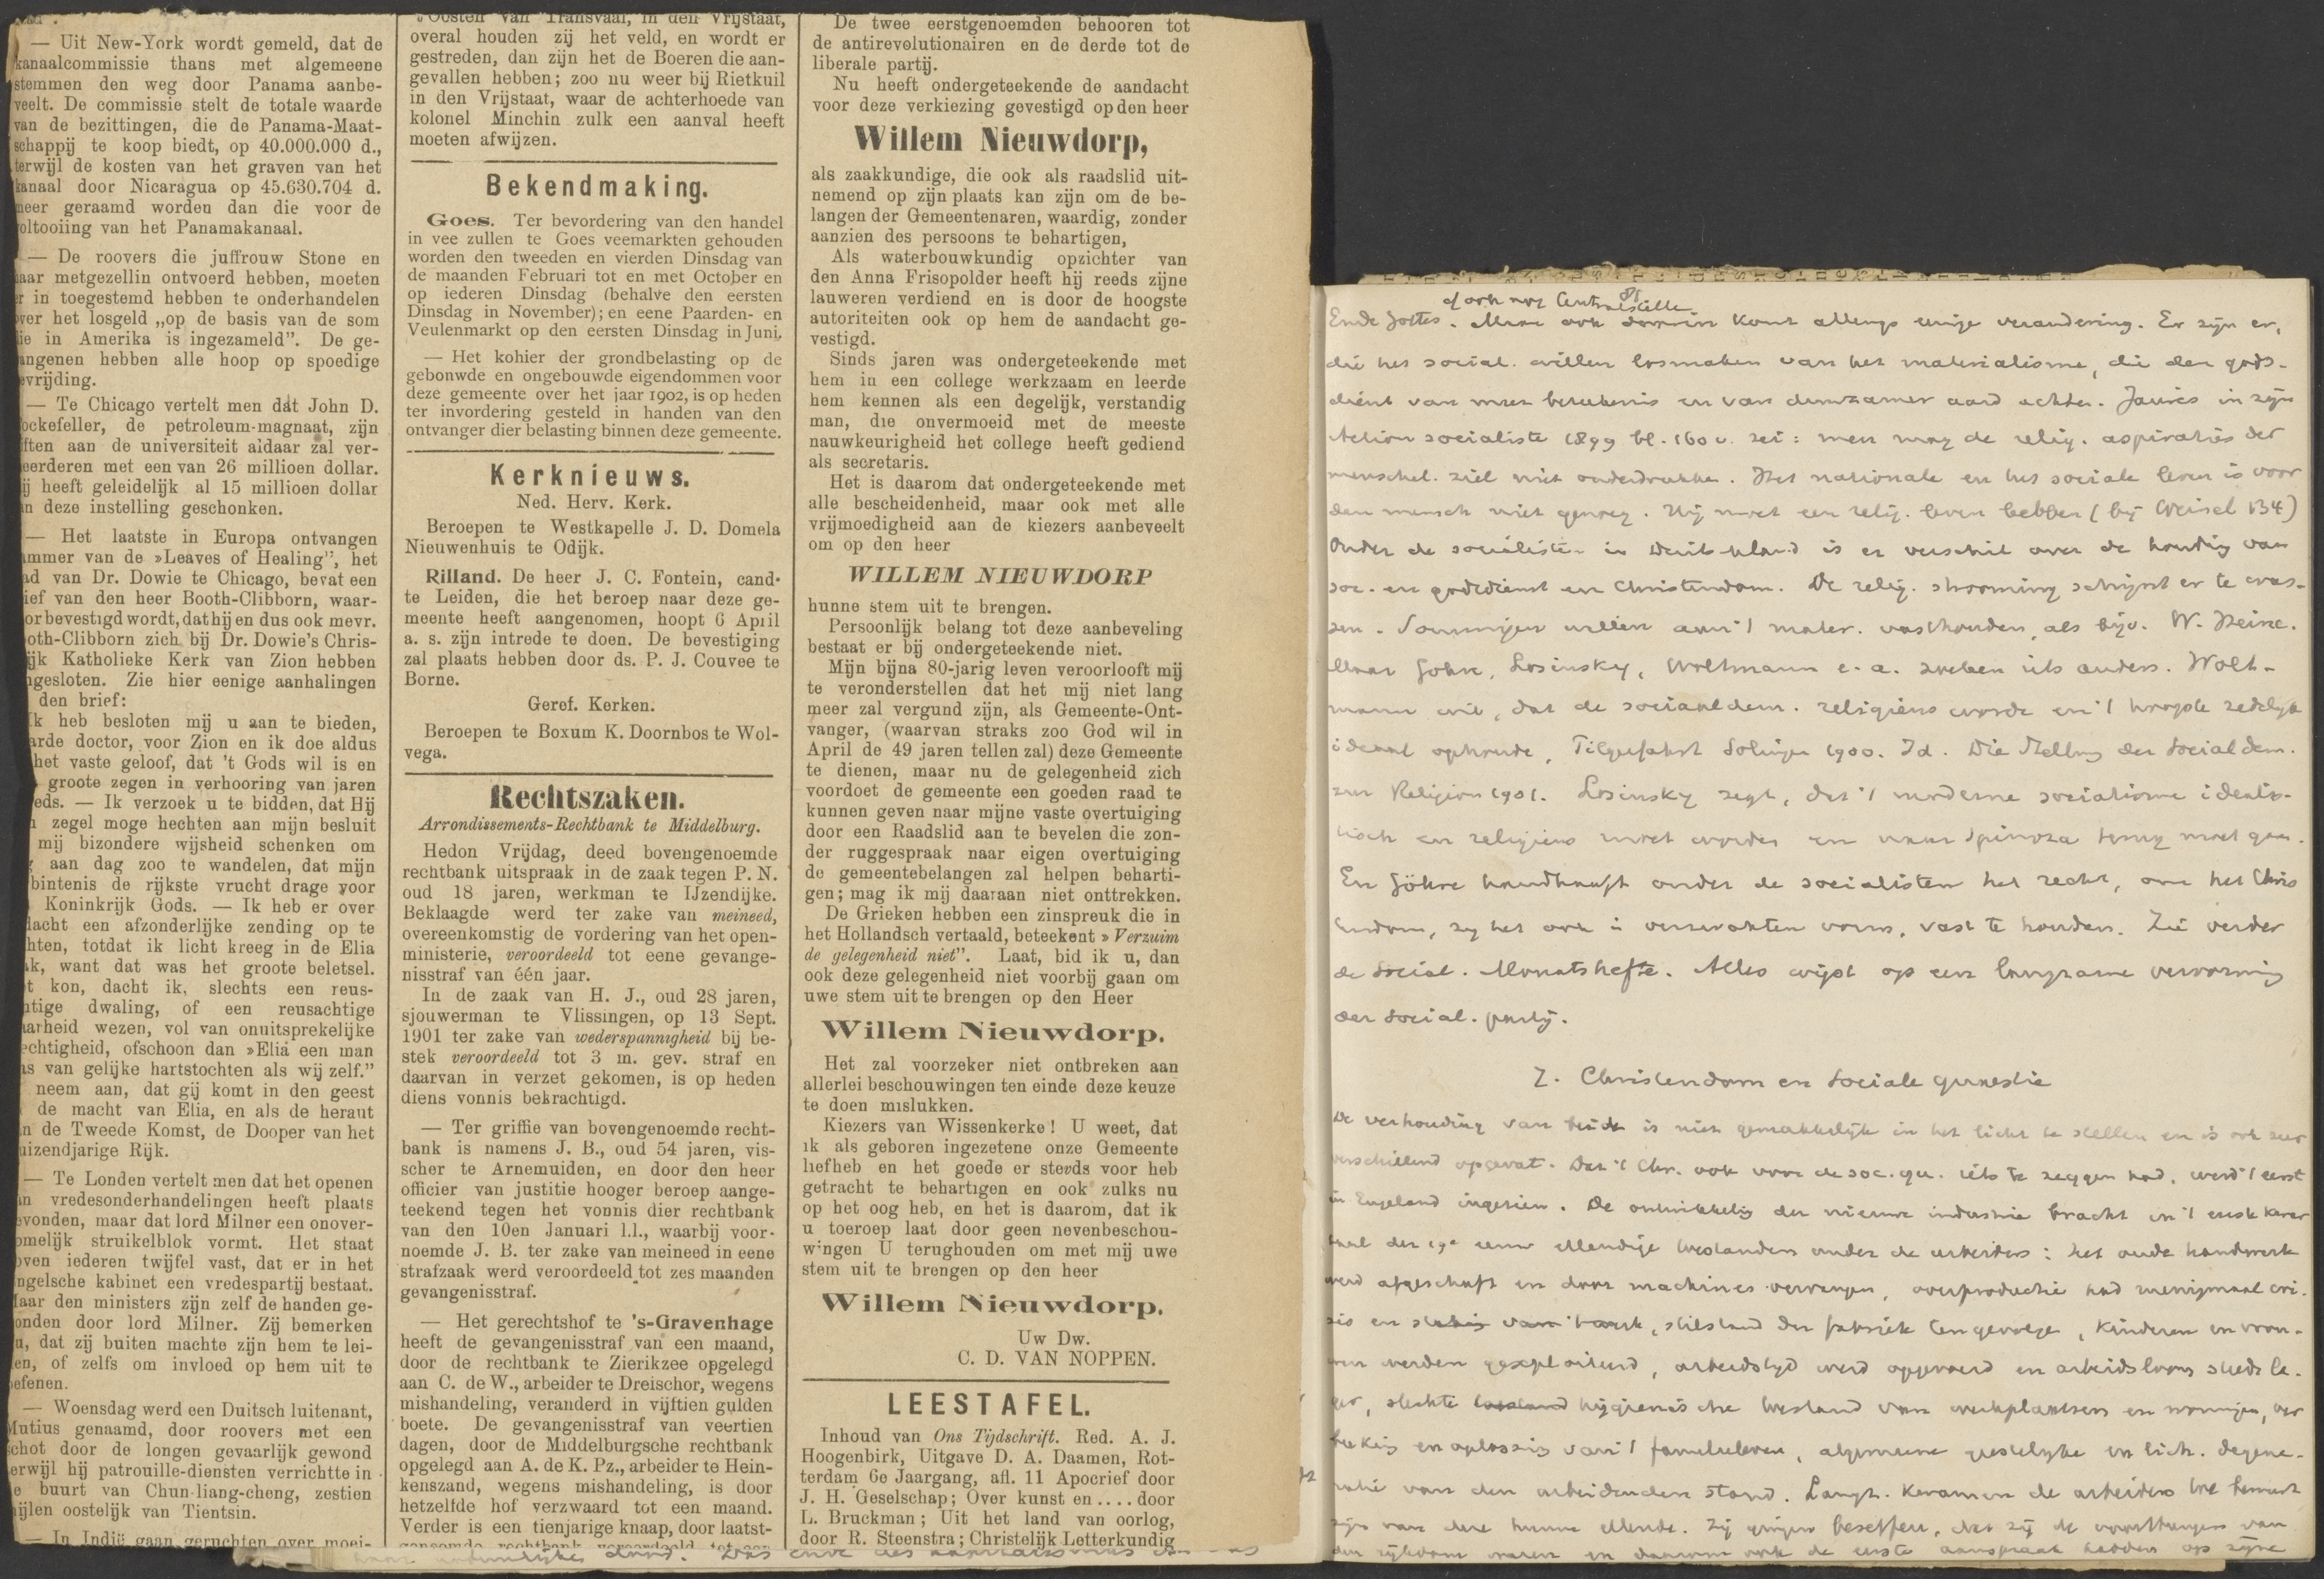 — Uit New-York wordt gemeld, dat de
kanaalcommissie thans met algemeene
stemmen den weg door Panama aanbe-
veelt. De commissie stelt de totale waarde
van de bezittingen, die de Panama-Maat-
schappij te koop biedt, op 40.000.000 d.,
terwijl de kosten van het graven van het
kanaal door Nicaragua op 45.630.704 d.
meer geraamd worden dan die voor de
voltooiing van het Panamakanaal.
— De roovers die juffrouw Stone en
haar metgezellin ontvoerd hebben, moeten
er in toegestemd hebben te onderhandelen
over het losgeld „op de basis van de som
die in Amerika is ingezameld”. De ge-
angenen hebben alle hoop op spoedige
evrijding.
— Te Chicago vertelt men dat John D.
ockefeller, de petroleum-magnaat, zijn
iften aan de universiteit aldaar zal ver-
eerderen met een van 26 millioen dollar.
ij heeft geleidelijk al 15 millioen dollar
an deze instelling geschonken.
— Het laatste in Europa ontvangen
ummer van de »Leaves of Healing”, het
ad van Dr. Dowie te Chicago, bevat een
ief van den heer Booth-Clibborn, waar-
or bevestigd wordt, dat hij en dus ook mevr.
oth-Clibborn zich bij Dr. Dowie's Chris-
ijk Katholieke Kerk van Zion hebben
ngesloten. Zie hier eenige aanhalingen
den brief:
k heb besloten mij u aan te bieden,
arde doctor, voor Zion en ik doe aldus
het vaste geloof, dat 't Gods wil is en
groote zegen in verhooring van jaren
eds. — Ik verzoek u te bidden, dat Hij
zegel moge hechten aan mijn besluit
mij bizondere wijsheid schenken om
aan dag zoo te wandelen, dat mijn
bintenis de rijkste vrucht drage voor
Koninkrijk Gods. — Ik heb er over
dacht een afzonderlijke zending op te
hten, totdat ik licht kreeg in de Elia
ak, want dat was het groote beletsel.
t kon, dacht ik, slechts een reus-
htige dwaling, of een reusachtige
aarheid wezen, vol van onuitsprekelijke
echtigheid, ofschoon dan »Elia een man
as van gelijke hartstochten als wij zelf.”
neem aan, dat gij komt in den geest
de macht van Elia, en als de heraut
n de Tweede Komst, de Dooper van het
uizendjarige Rijk.
— Te Londen vertelt men dat het openen
an vredesonderhandelingen heeft plaats
evonden, maar dat lord Milner een onover-
omelijk struikelblok vormt. Het staat
oven iederen twijfel vast, dat er in het
ngelsche kabinet een vredespartij bestaat.
aar den ministers zijn zelf de handen ge-
onden door lord Milner. Zij bemerken
u, dat zij buiten machte zijn hem te lei-
en, of zelfs om invloed op hem uit te
efenen.
— Woensdag werd een Duitsch luitenant,
Mutius genaamd, door roovers met een
chot door de longen gevaarlijk gewond
erwijl hij patrouille-diensten verrichtte in
e buurt van Chun-liang-cheng, zestien
ijlen oostelijk van Tientsin.
— In Indië gaan geruchten over moei-
't Oosten van Transvaal, in den Vrijstaat,
overal houden zij het veld, en wordt er
gestreden, dan zijn het de Boeren die aan-
gevallen hebben; zoo nu weer bij Rietkuil
in den Vrijstaat, waar de achterhoede van
kolonel Minchin zulk een aanval heeft
moeten afwijzen.
Bekendmaking.
Goes. Ter bevordering van den handel
in vee zullen te Goes veemarkten gehouden
worden den tweeden en vierden Dinsdag van
de maanden Februari tot en met October en
op iederen Dinsdag (behalve den eersten
Dinsdag in November); en eene Paarden- en
Veulenmarkt op den eersten Dinsdag in Juni.
— Het kohier der grondbelasting op de
gebonwde en ongebouwde eigendommen voor
deze gemeente over het jaar 1902, is op heden
ter invordering gesteld in handen van den
ontvanger dier belasting binnen deze gemeente.
Kerknieuws.
Ned. Herv. Kerk.
Beroepen te Westkapelle J. D. Domela
Nieuwenhuis te Odijk.
Rilland. De heer J. C. Fontein, cand·
te Leiden, die het beroep naar deze ge-
meente heeft aangenomen, hoopt 6 April
a. s. zijn intrede te doen. De bevestiging
zal plaats hebben door ds. P. J. Couvee te
Borne.
Geref. Kerken.
Beroepen te Boxum K. Doornbos te Wol-
vega.
Rechtszaken.
Arrondissements-Rechtbank te Middelburg.
Hedon Vrijdag, deed bovengenoemde
rechtbank uitspraak in de zaak tegen P. N.
oud 18 jaren, werkman te IJzendijke.
Beklaagde werd ter zake van meineed,
overeenkomstig de vordering van het open-
ministerie, veroordeeld tot eene gevange-
nisstraf van één jaar.
In de zaak van H. J., oud 28 jaren,
sjouwerman te Vlissingen, op 13 Sept.
1901 ter zake van wederspannigheid bij be-
stek veroordeeld tot 3 m. gev. straf en
daarvan in verzet gekomen, is op heden
diens vonnis bekrachtigd.
— Ter griffie van bovengenoemde recht-
bank is namens J. B., oud 54 jaren, vis-
scher te Arnemuiden, en door den heer
officier van justitie hooger beroep aange-
teekend tegen het vonnis dier rechtbank
van den 10en Januari l.l., waarbij voor-
noemde J. B. ter zake van meineed in eene
strafzaak werd veroordeeld tot zes maanden
gevangenisstraf.
— Het gerechtshof te 's-Gravenhage
heeft de gevangenisstraf van een maand,
door de rechtbank te Zierikzee opgelegd
aan C. de W., arbeider te Dreischor, wegens
mishandeling, veranderd in vijftien gulden
boete. De gevangenisstraf van veertien
dagen, door de Middelburgsche rechtbank
opgelegd aan A. de K. Pz., arbeider te Hein-
kenszand, wegens mishandeling, is door
hetzelfde hof verzwaard tot een maand.
Verder is een tienjarige knaap, door laatst-
genoemde rechtbank veroordeeld tot een
De twee eerstgenoemden behooren tot
de antirevolutionairen en de derde tot de
liberale partij.
Nu heeft ondergeteekende de aandacht
voor deze verkiezing gevestigd op den heer
Willem Nieuwdorp,
als zaakkundige, die ook als raadslid uit-
nemend op zijn plaats kan zijn om de be-
langen der Gemeentenaren, waardig, zonder
aanzien des persoons te behartigen,
Als waterbouwkundig opzichter van
den Anna Frisopolder heeft hij reeds zijne
lauweren verdiend en is door de hoogste
autoriteiten ook op hem de aandacht ge-
vestigd.
Sinds jaren was ondergeteekende met
hem in een college werkzaam en leerde
hem kennen als een degelijk, verstandig
man, die onvermoeid met de meeste
nauwkeurigheid het college heeft gediend
als secretaris.
Het is daarom dat ondergeteekende met
alle bescheidenheid, maar ook met alle
vrijmoedigheid aan de kiezers aanbeveelt
om op den heer
WILLEM NIEUWDORP
hunne stem uit te brengen.
Persoonlijk belang tot deze aanbeveling
bestaat er bij ondergeteekende niet.
Mijn bijna 80-jarig leven veroorlooft mij
te veronderstellen dat het mij niet lang
meer zal vergund zijn, als Gemeente-Ont-
vanger, (waarvan straks zoo God wil in
April de 49 jaren tellen zal) deze Gemeente
te dienen, maar nu de gelegenheid zich
voordoet de gemeente een goeden raad te
kunnen geven naar mijne vaste overtuiging
door een Raadslid aan te bevelen die zon-
der ruggespraak naar eigen overtuiging
de gemeentebelangen zal helpen beharti-
gen; mag ik mij daaraan niet onttrekken.
De Grieken hebben een zinspreuk die in
het Hollandsch vertaald, beteekent »Verzuim
de gelegenheid niet”. Laat, bid ik u, dan
ook deze gelegenheid niet voorbij gaan om
uwe stem uit te brengen op den Heer
Willem Nieuwdorp.
Het zal voorzeker niet ontbreken aan
allerlei beschouwingen ten einde deze keuze
te doen mislukken.
Kiezers van Wissenkerke! U weet, dat
ik als geboren ingezetene onze Gemeente
liefheb en het goede er steeds voor heb
getracht te behartigen en ook zulks nu
op het oog heb, en het is daarom, dat ik
u toeroep laat door geen nevenbeschou-
wingen U terughouden om met mij uwe
stem uit te brengen op den heer
Willem Nieuwdorp.
Uw Dw.
C. D. VAN NOPPEN.
LEESTAFEL.
Inhoud van Ons Tijdschrift. Red. A. J.
Hoogenbirk, Uitgave D. A. Daamen, Rot-
terdam 6e Jaargang, afl. 11 Apocrief door
J. H. Geselschap; Over kunst en .... door
L. Bruckman; Uit het land van oorlog,
door R. Steenstra; Christelijk Letterkundig
81
Maar ook daarin komt allengs eenige verandering. Er zijn er,
die het social. willen losmaken van het materialisme, die den gods-
dienst van meer beteekenis en van duurzamer aard achten. Jaurès in zijn
Action socialiste 1899 bl. 160 v. zei: men mag de relig. aspiraties der
menschel. ziel niet onderdrukken. Het nationale en het sociale leven is voor
den mensch niet genoeg. Hij moet een relig. leven hebben (bij Weisel 134)
Onder de socialisten in Duitschland is er verschil over de houding van
soc. en godsdienst en Christendom. De relig. strooming schijnt er te was-
sen. Sommigen willen aan 't mater. vasthouden, als bijv. W. Heine.
Maar Göhre, Losinsky, Woltmann e. a. zoeken iets anders. Wolt-
mann wil, dat de sociaaldem. religieus worde en 't hoogste zedelijk
ideaal ophoude, Solingen 1900. Id. Die Stellung der Socialdem.
zur Religion 1901. Losinsky zegt, dat 't moderne socialisme idealis-
tisch en religieus moet worden en naar Spinoza terug moet gaan.
En Göhre handhaaft onder de socialisten het recht, om het Chris
tendom, zij het ook in verzwakten vorm, vast te houden. Zie verder
de Social. Monatshefte. Alles wijst op een langzame vervorming
der social. partij.
7. Christendom en Sociale quaestie
De verhouding van beide is niet gemakkelijk in het licht te stellen en is ook zeer
verschillend opgevat. Dat 't Chr. ook voor de soc. qu. iets te zeggen had, werd 't eerst
in Engeland ingezien. De ontwikkeling der nieuwe industrie bracht in 't eerste kwar
taal der 19e eeuw ellendige toestanden onder de arbeiders: het oude handwerk
werd afgeschaft en door machines vervangen, overproductie had menigmaal cri-
sis en stilstand der fabriek tengevolge, kinderen en vrou-
wen werden geexploiteerd, arbeidstijd werd opgevoerd en arbeidsloon steeds la-
ger, slechte hygienische toestand van werkplaatsen en woningen, ver
en oplossing van 't familieleven, algemeene geestelijke en lich. degene-
ratie van den arbeidenden stand. Langz. kwamen de arbeiders tot bewust
zijn van deze hunne ellende. Zij gingen beseffen, dat zij de voortbrengers van
den rijkdom waren en daarom ook de eerste aanspraak hadden op zijne